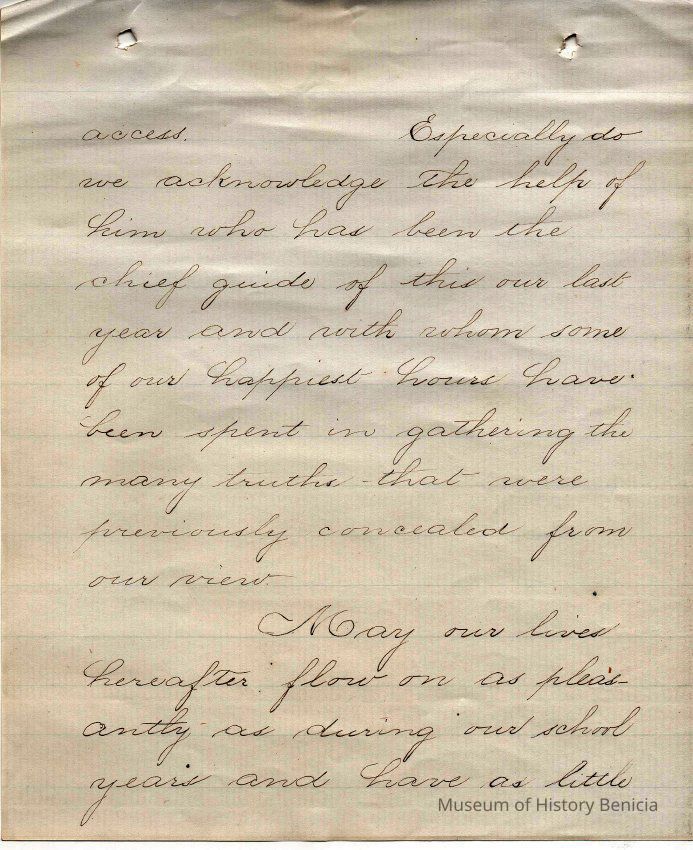 access. Especially do
we acknowledge the help of
him who has been the
chief guide of this our last
year and with whom some
of our happiest hours have
been spent in gathering the
many truths that were
previously concealed from
our view.
May our lives
hereafter flow on as pleas-
antly as during our school
years and have as little
Museum of History Benicia